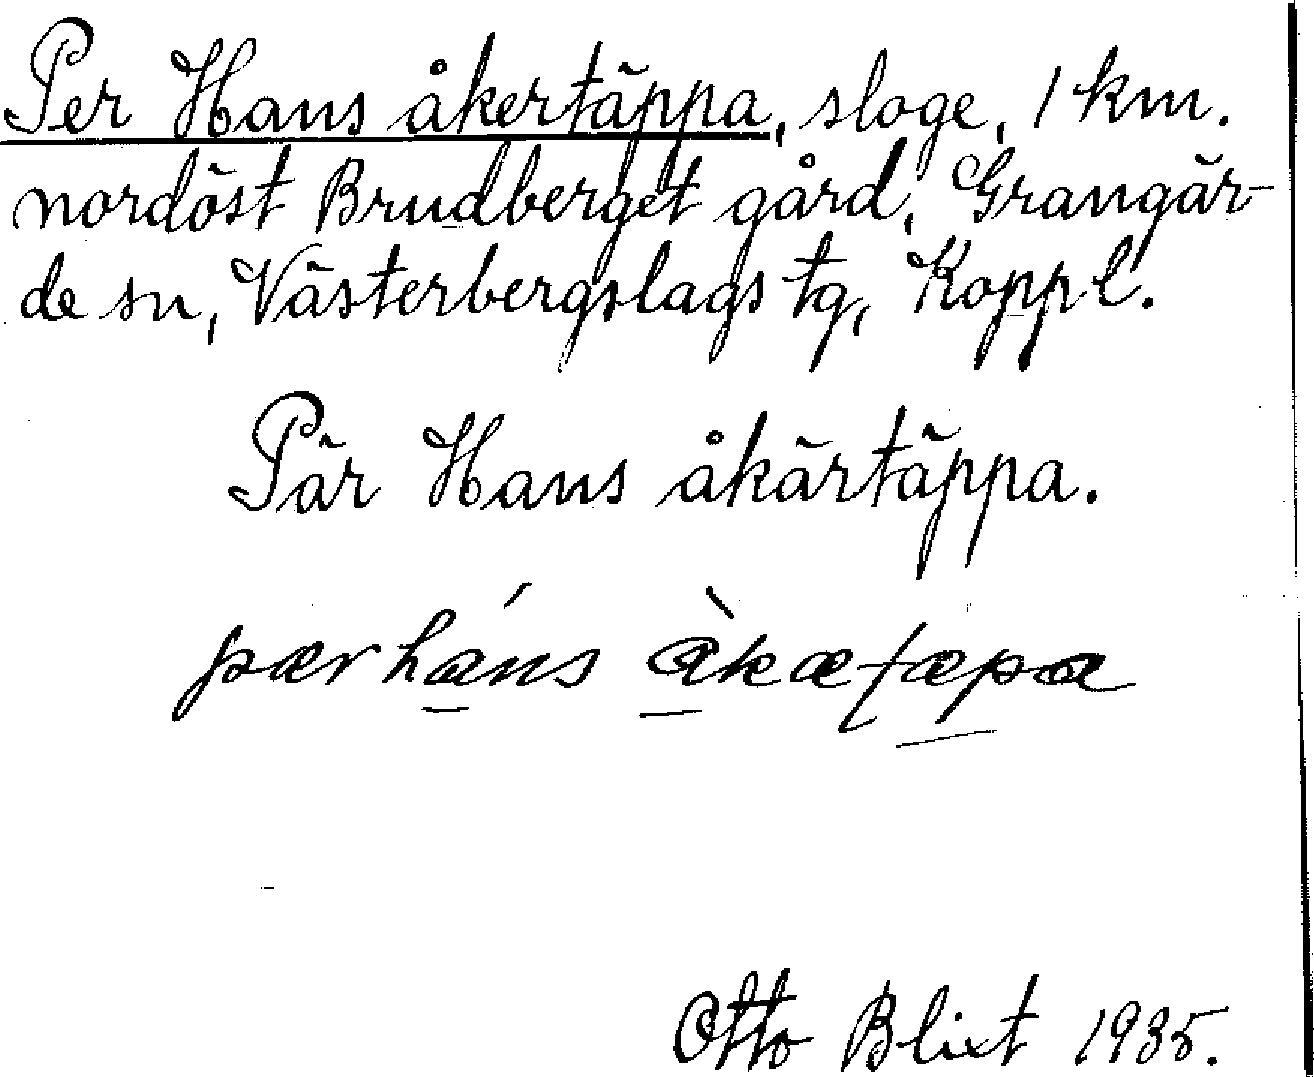 Per Hans åkertäppa, sloge, 1 km.
nordöst Brudberget gård, Grangär-
de sn, Västerbergslags tg, Koppl.
Pär Hans åkärtäppa.
pærháns
Otto Blixt 1935.